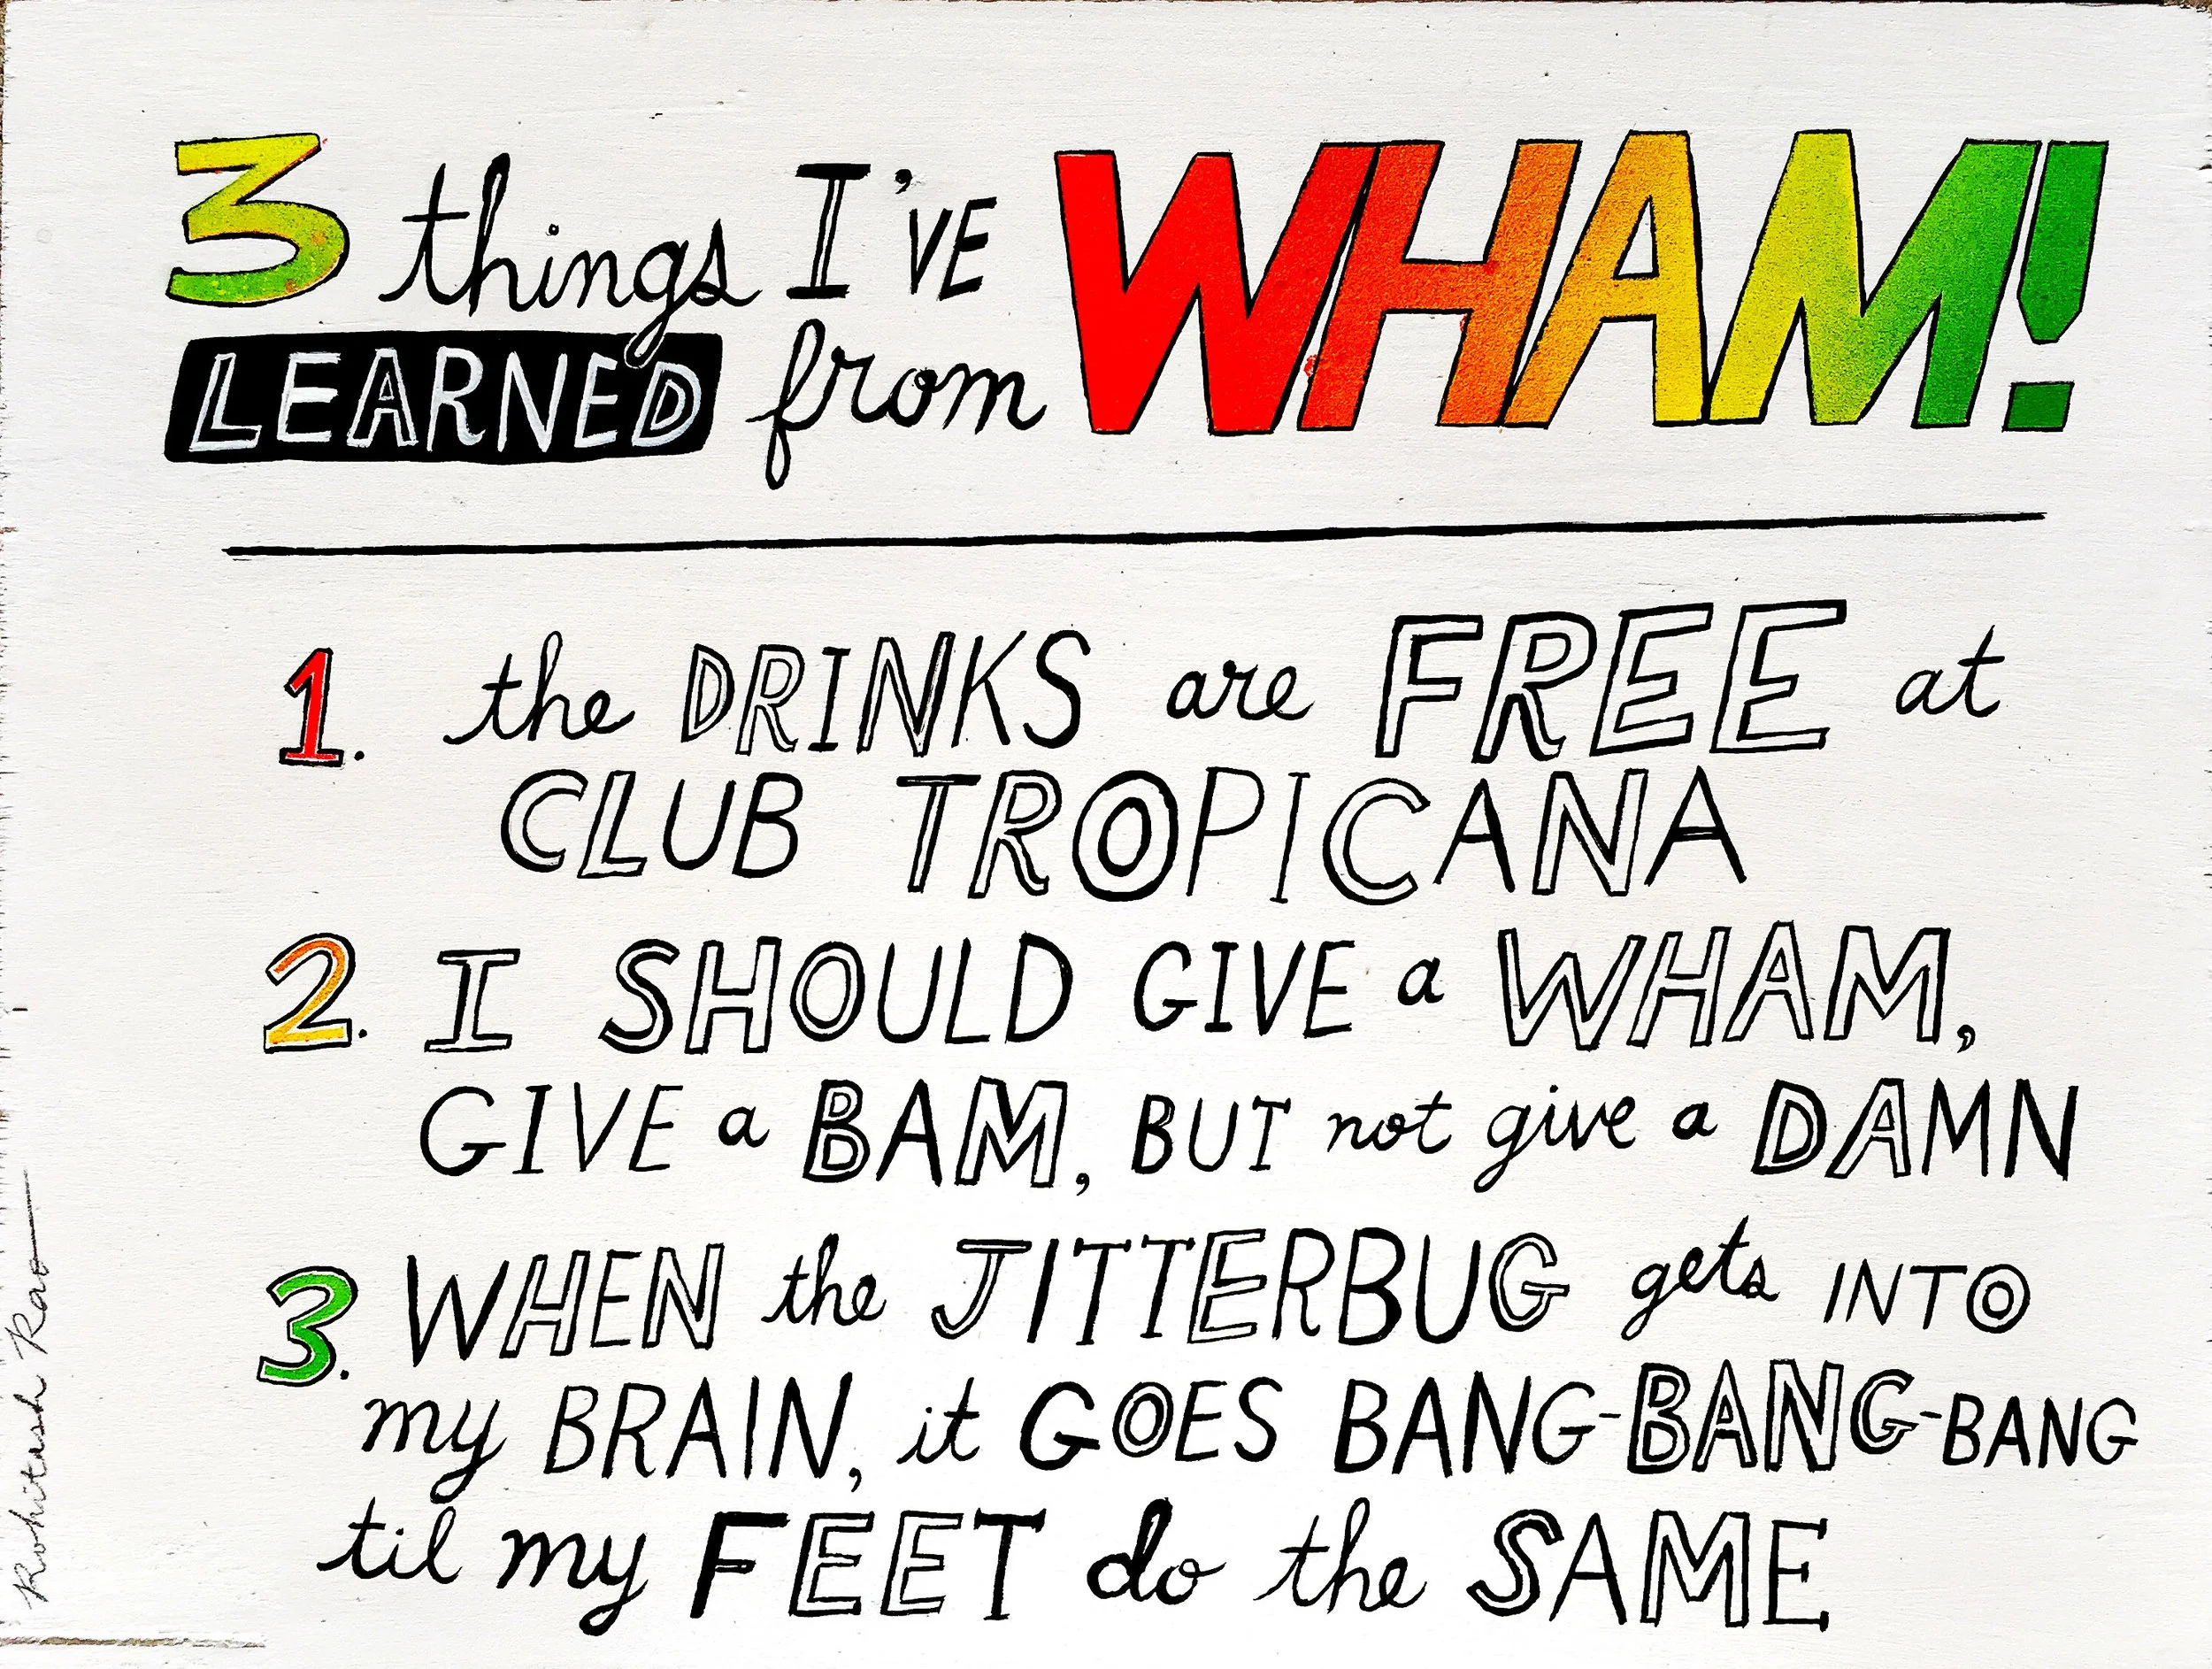 3 things I'VE
LEARNED from WHAM!
1. the DRINKS are FREE at
CLUB TROPICANA
2. I SHOULD GIVE a WHAM,
GIVE a BAM, BUT not give a DAMN
3. WHEN the JITTERBUG gets INTO
my BRAIN, it GOES BANG-BANG-BANG
til my FEET do the SAME
Rohitash Rao